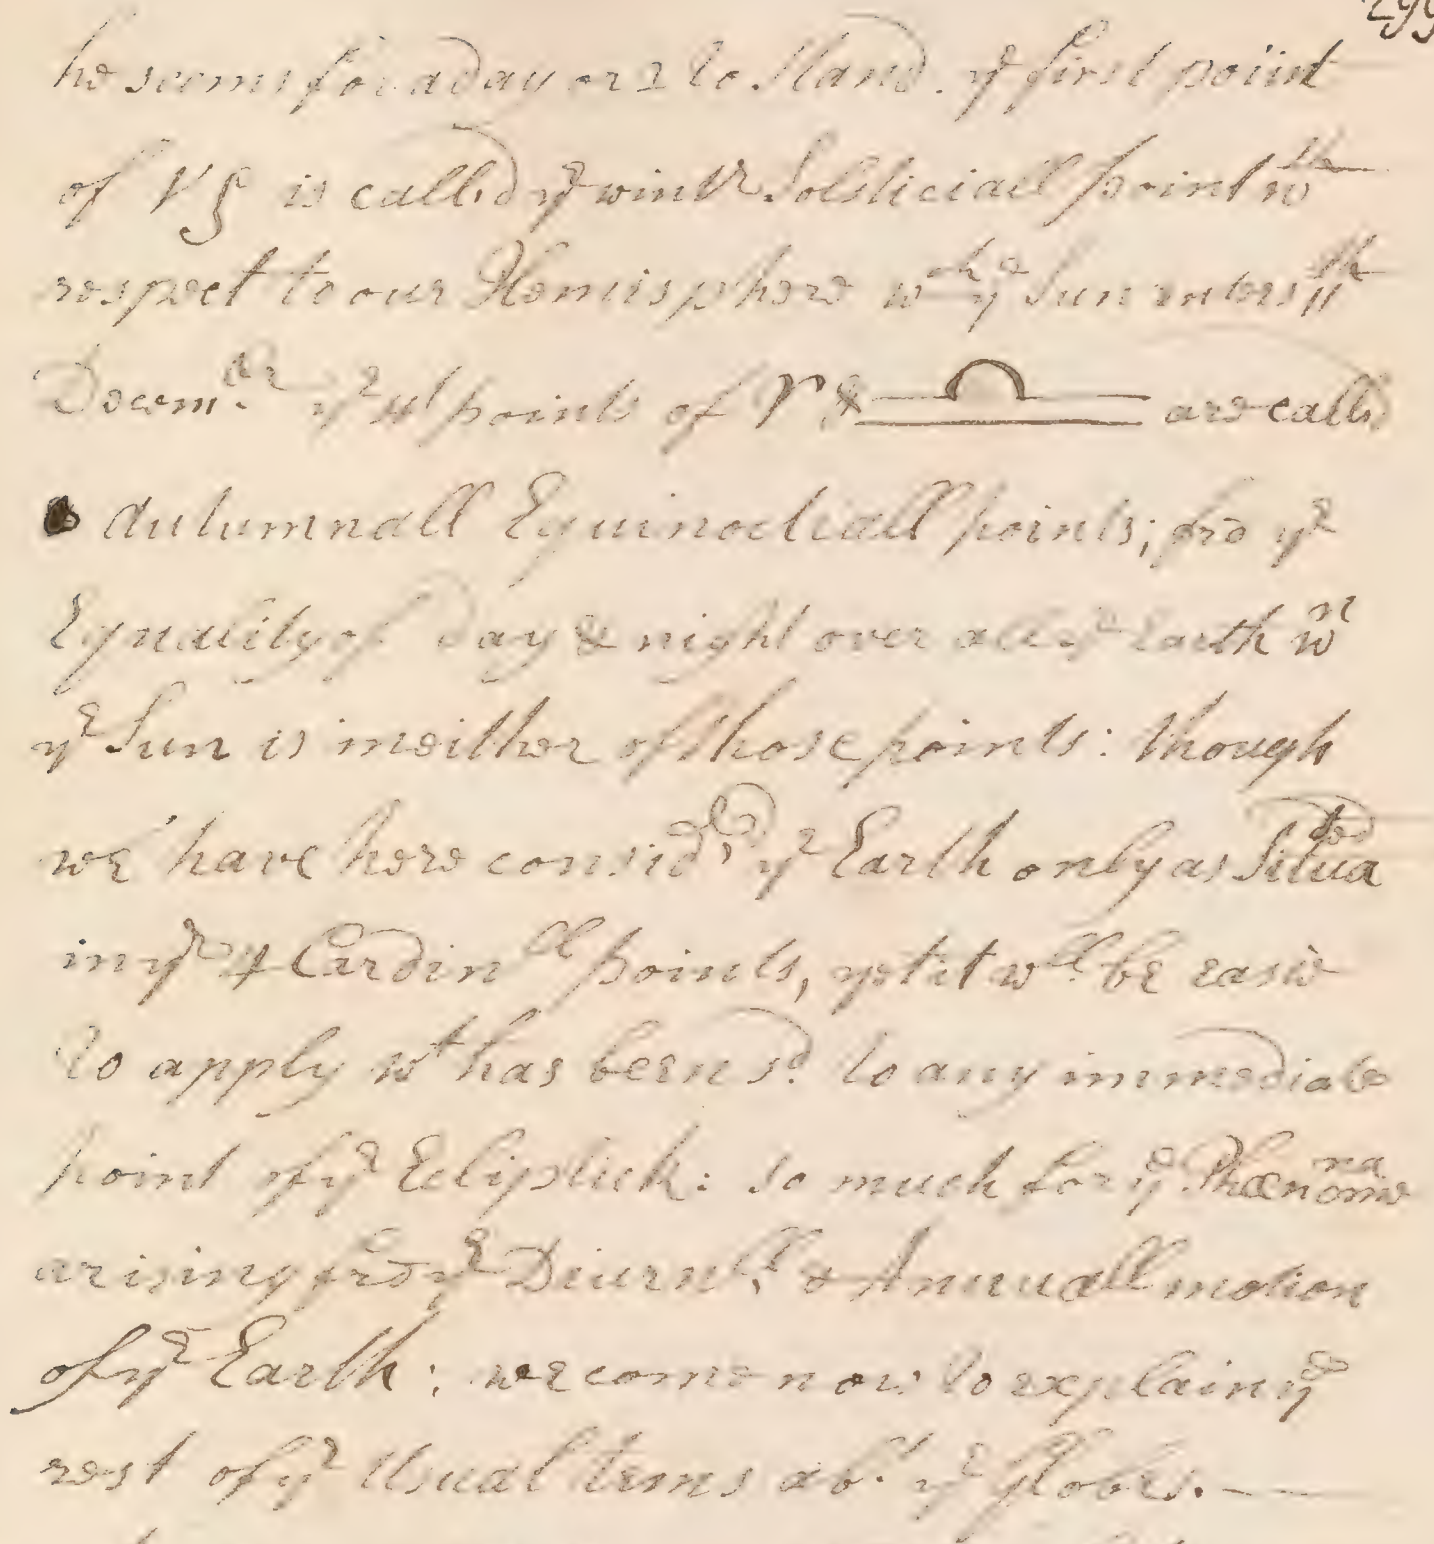 299
he seems for a day or 2 to stand. yͤ first point
of ♑ is called yͤ wintr Solsticiall point wth
respect to our Hemisphere wch yͤ Sun enters 11th
December yͤ 1st points of ♈ & ♎ are calld
Autumnall Equinoctiall points; frō yͤ
Equality of day & night over all yͤ Earth wn
yͤ Sun is in either of those points: though
we have here considerd yͤ Earth only as Situated
in yͤ 4 Cardinll points, yet it wll be easie
to apply wt has been sd. to any immediate
point of yͤ Ecliptick: so much for yͤ Phænomena
arising frō yͤ Diurnll & Annuall motion
of yͤ Earth: we come now to explain yͤ
rest of yͤ Usual terms abt yͤ globes.